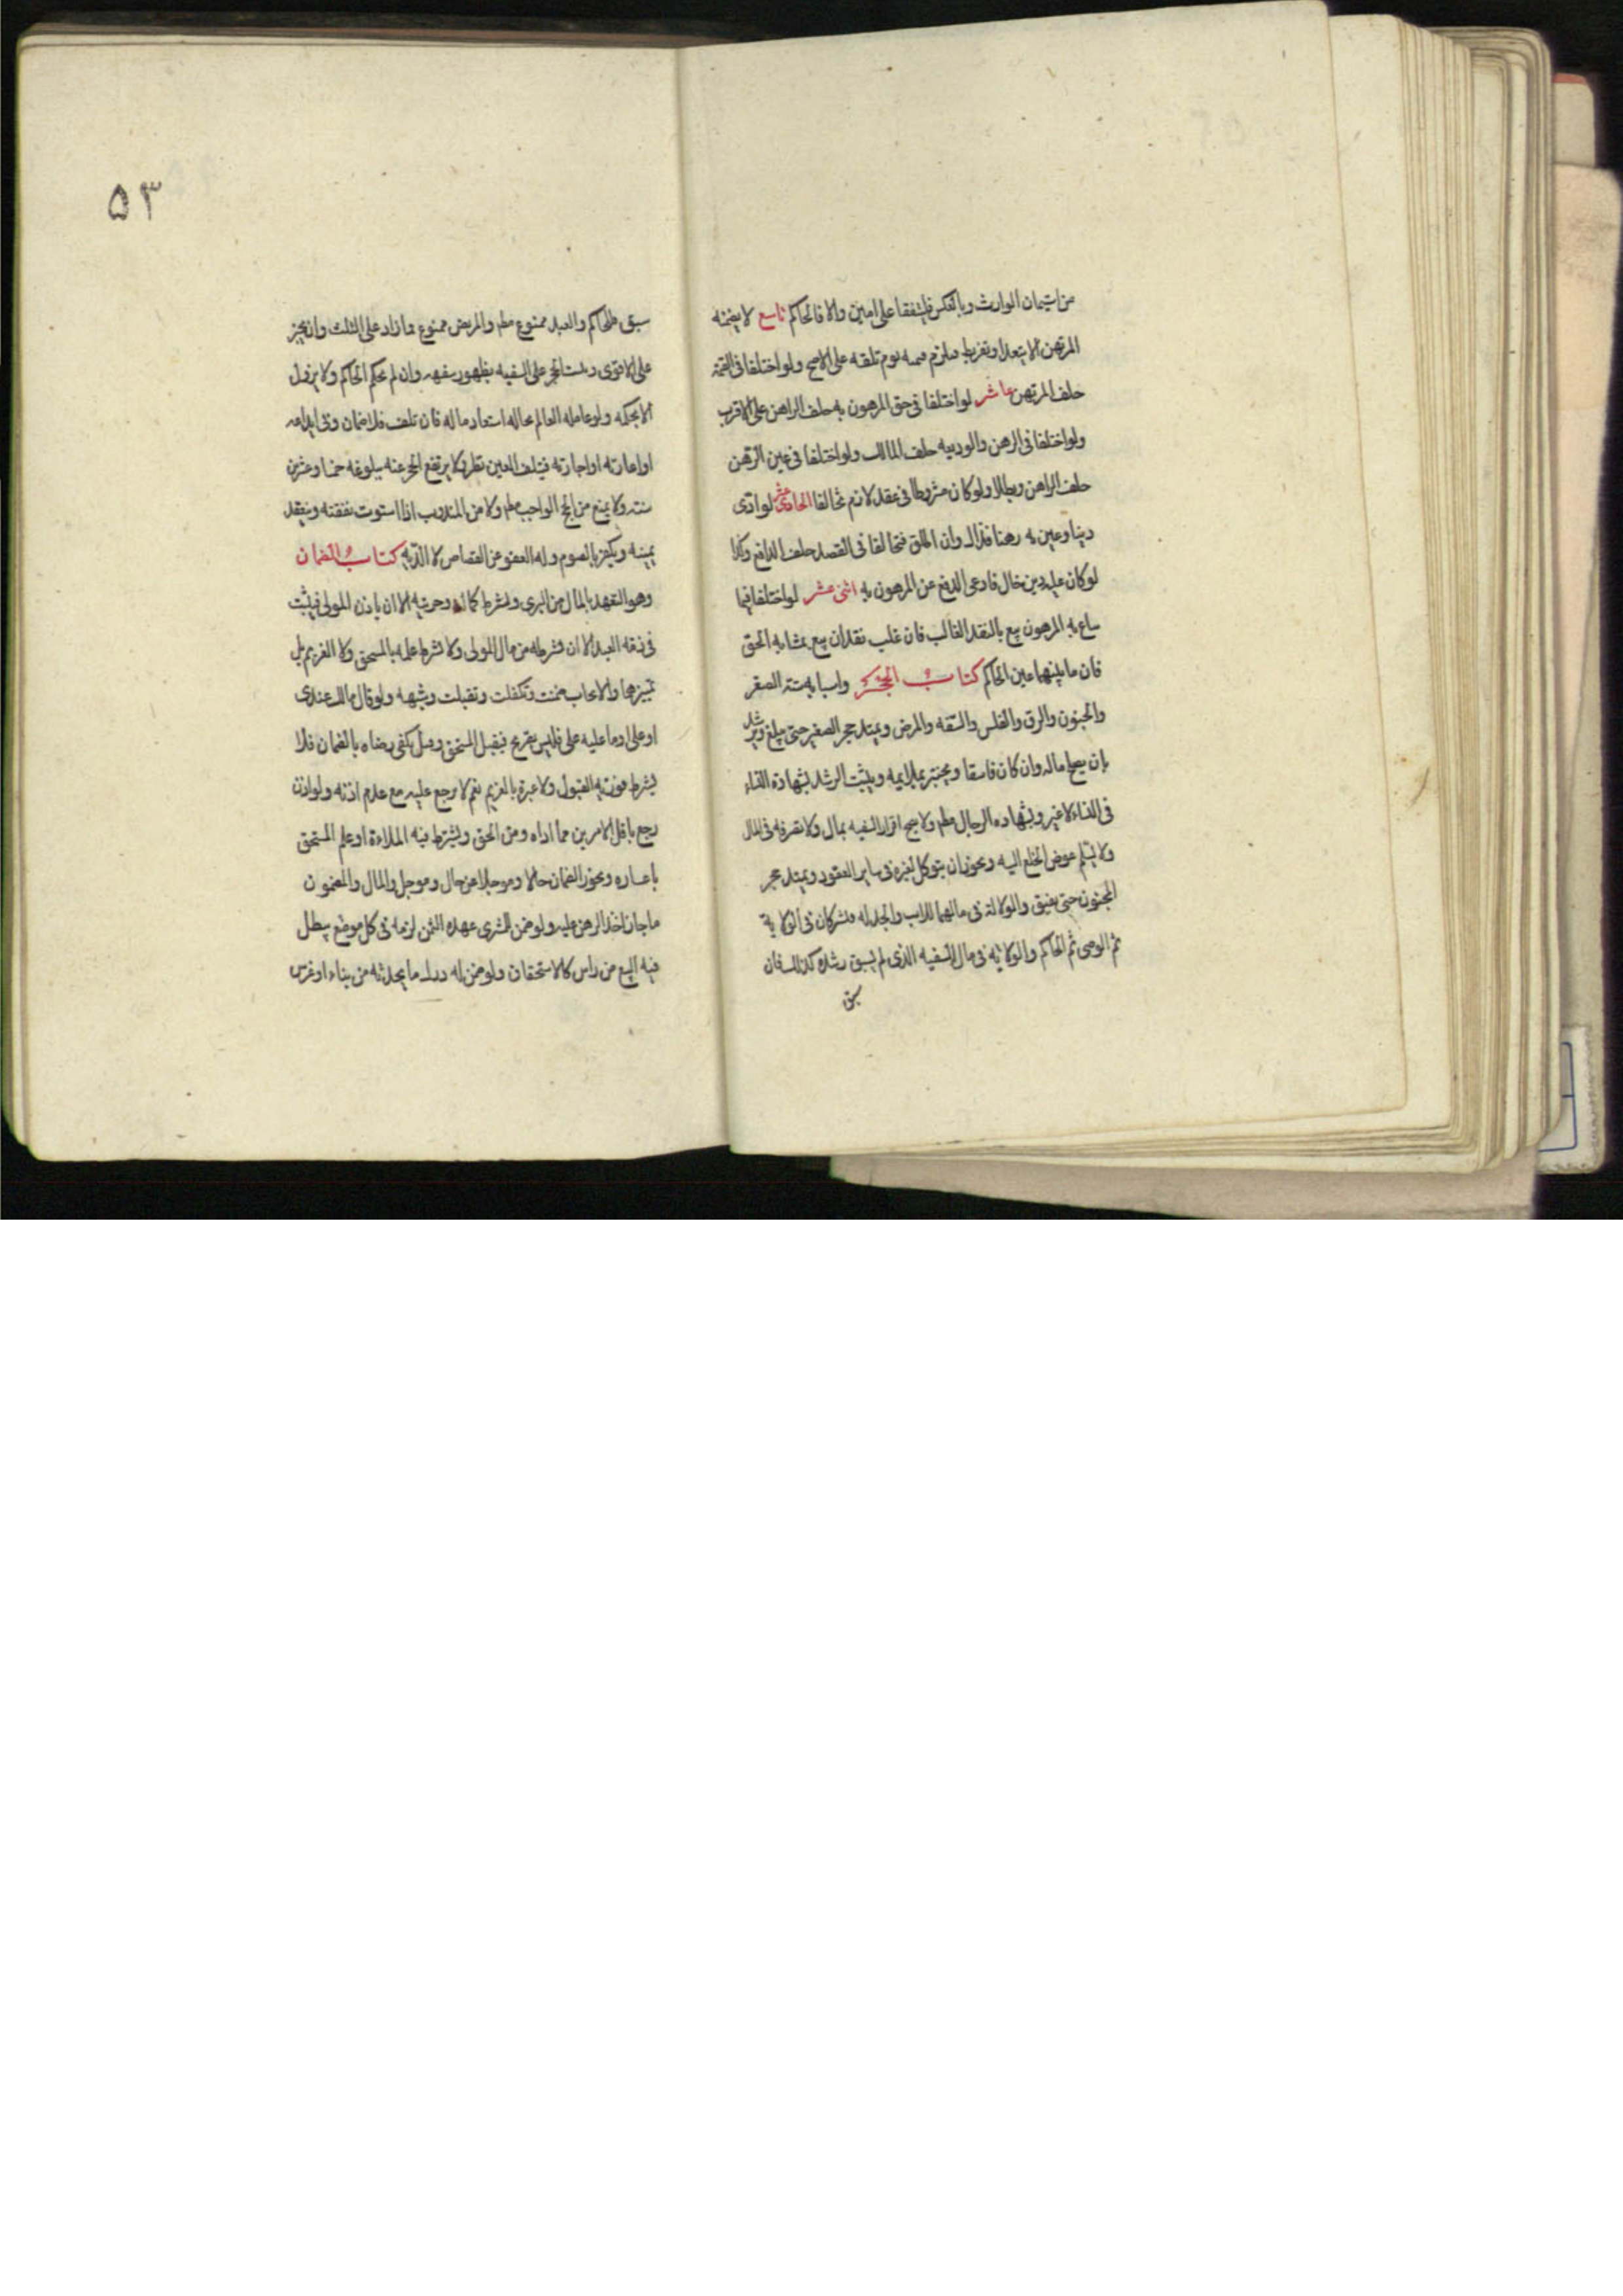 من استيمان الوارث وبالعكس فليتفقا على امين والا فالحاكم تاسع لا يضمنه
المرتهن الا بتعد او تفريط فيلزم قيمته يوم تلفه على الاصح ولو اختلفا فى القيمة
حلف المرتهن عاشر لو اختلفا فى حق المرهون به حلف الراهن على الاقرب
ولو اختلفا فى الرهن والوديعه حلف المالك ولو اختلفا فى عين الرهن
حلف الراهن وبطلا ولو كان مشروطا فى عقد لازم تحالفا الحادى عشر لو ادى
دينا وعين به رهنا فذاك وان اطلق فتخالفا فى القصد حلف الدافع وكذا
لو كان عليه دين خال فادعى الدفع عن المرهون به اثنى عشر لو اختلفا فيما
يباع به المرهون بيع بالنقد الغالب فان غلب نقدان بيع بمشابه الحق
فان باينهما عين الحاكم كتاب الحجر واسبابه ستة الصغر
والجنون والرق والفلس والسفه والمرض ويمتد حجر الصغير حتى يبلغ ويرشد
بان يصلح ماله وان كان فاسقا ويختبر بملايمه ويثبت الرشد بشهادة النساء
فى النساء لا غير وبشهاده الرجال مطم ولا يصح اقرار السفيه بمال ولا تصرفه فى المال
ولا يسلم عوض الخلع اليه ويجوز ان يتوكل لغيره فى ساير العقود ويمتد حجر
المجنون حتى يفيق والولاية فى مالهما للاب والجد له فيشركان فى الولاية
ثم الوصى ثم الحاكم والولاية فى مال السفيه الذى لم يسبق رشده كذلك فان
سبق
٥٣
سبق فللحاكم والعبد ممنوع مطم والمريض ممنوع مما زاد على الثلث وان نجز
على الاقوى ويثبت الحجر على السفيه بظهور سفهه وان لم يحكم الحاكم ولا يزول
الا بحكمه ولو عامله العالم بحاله استعاد ماله فان تلف فلا ضمان وفى ايداعه
او اعارته او اجارته فيتلف العين نظر ولا يرتفع الحجر عنه ببلوغه خمسا وعشرين
سنة ولا يمنع من الحج الواجب مطم ولا من المندوب اذا استوت نفقته وينعقد
يمينه ويكفر بالصوم وله العفو عن القصاص لا الديه كتاب الضمان
وهو التعهد بالمال من البرى ويشترط كماله وحريته الا ان ياذن المولى فيثبت
فى ذمة العبد الا ان يشرطه من مال المولى ولا يشترط علمه بالمستحق ولا الغريم بل
تميزهما والايجاب ضمنت وتكفلت وتقبلت وشبهه ولو قال مالك عندى
او على او ما عليه على فليس بصريح فيقبل المستحق وقيل يكفى رضاه بالضمان فلا
يشترط فوريه القبول ولا عبرة بالغريم نعم لا يرجع عليه مع عدم اذنه ولو اذن
رجع باقل الامرين مما اداه ومن الحق ويشترط فيه الملاءة او علم المستحق
باعساره ويجوز الضمان حالا وموجلا عن حال وموجل والمال والمضمون
ما جاز اخذ الرهن عليه ولو ضمن للمشترى عهده الثمن لزمه فى كل موضع يبطل
فيه البيع من راس كالاستحقاق ولو ضمن له درك ما يحدثه من بناء او غرس